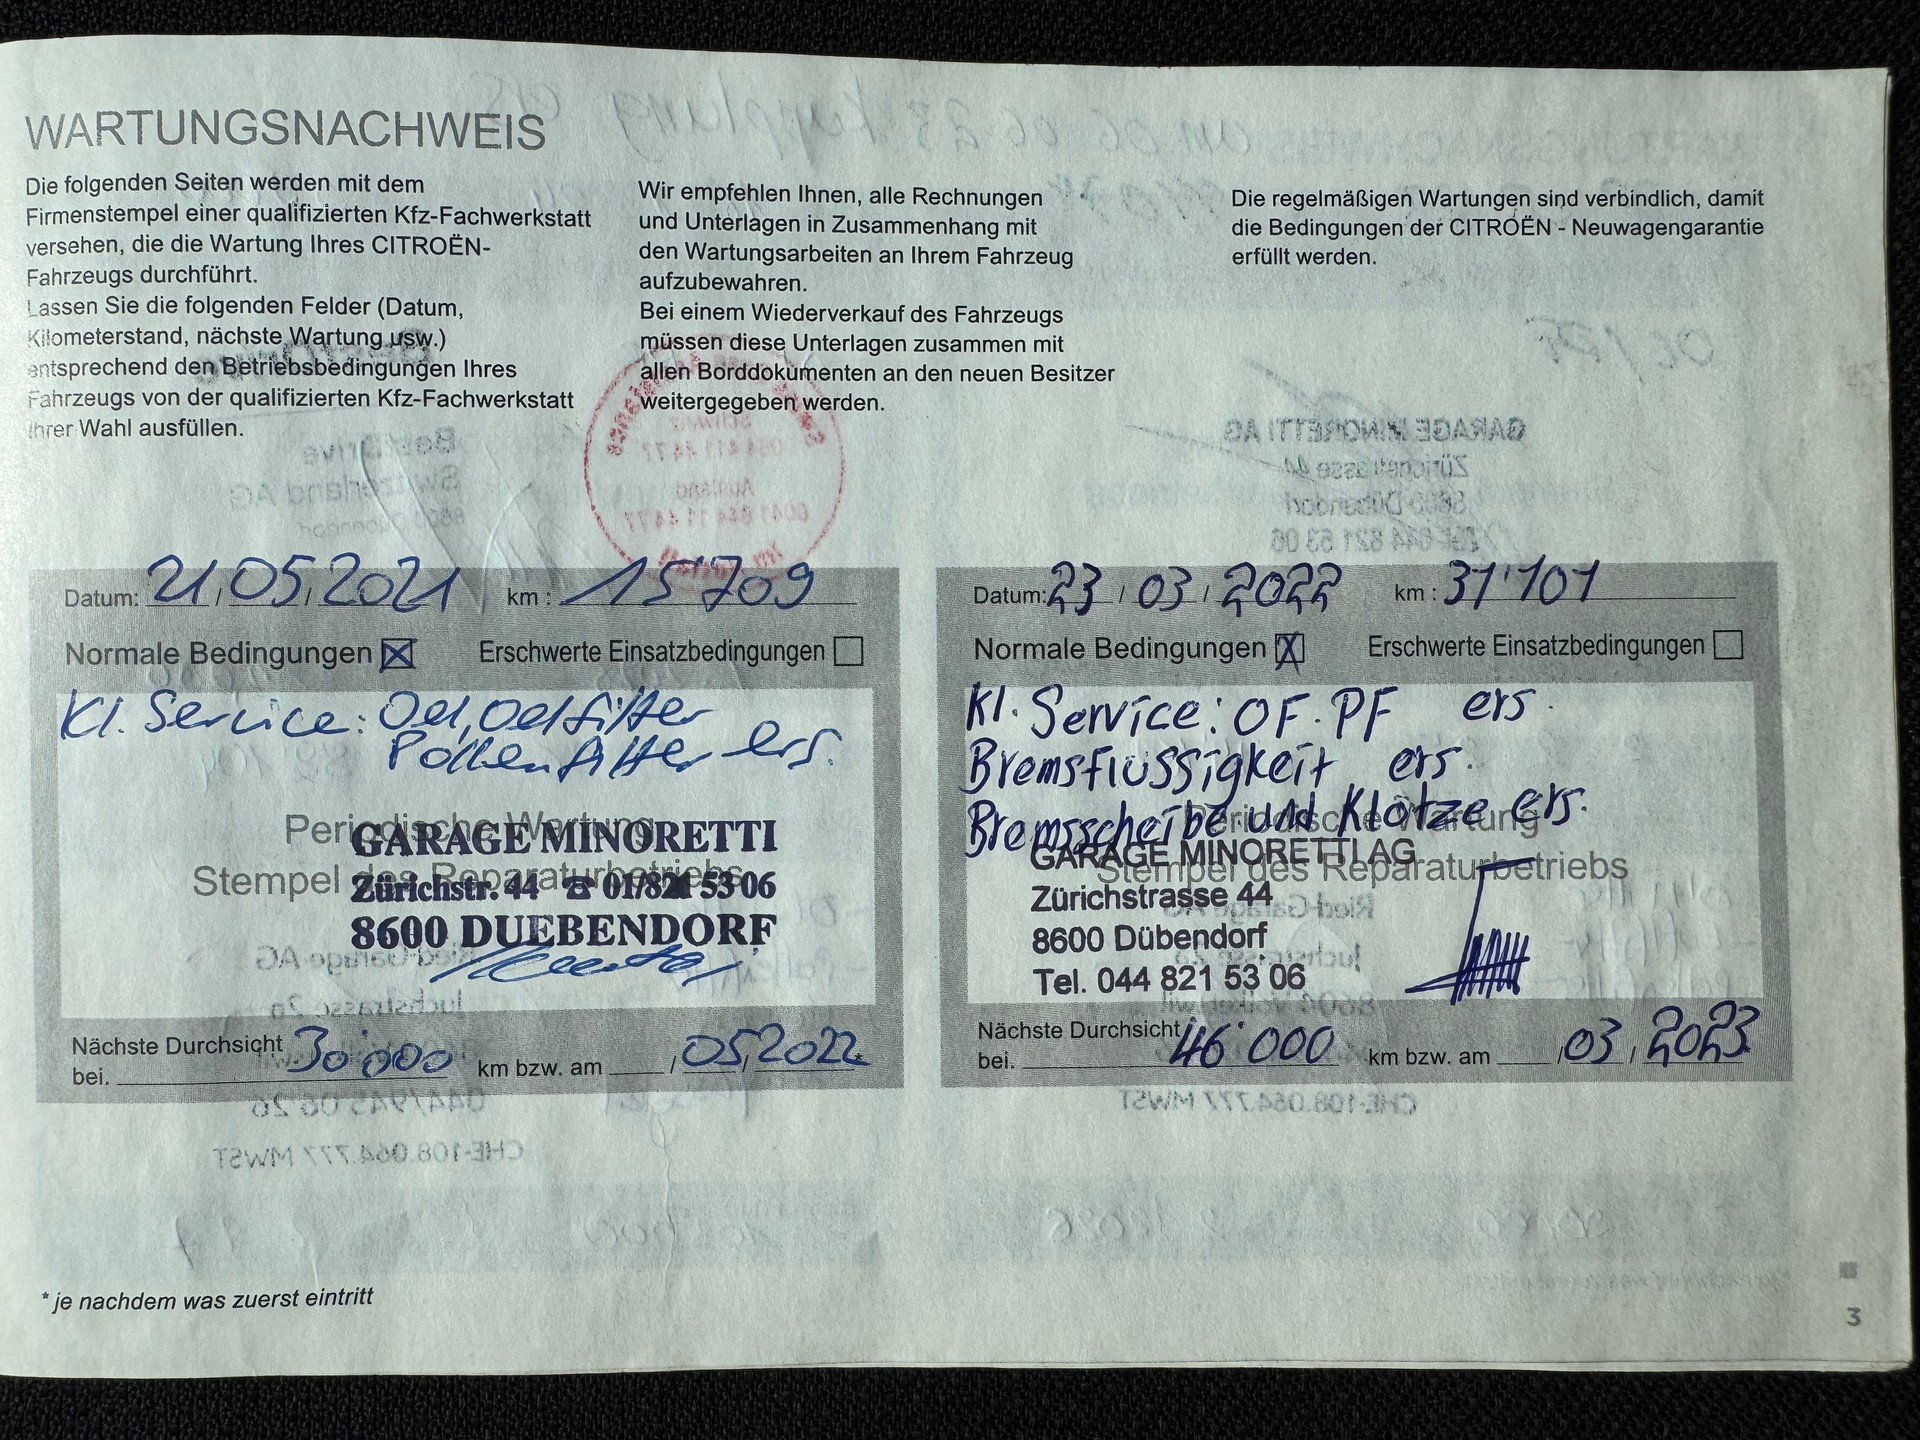 WARTUNGSNACHWEIS
Die folgenden Seiten werden mit dem
Firmenstempel einer qualifizierten Kfz-Fachwerkstatt
versehen, die die Wartung Ihres CITROËN-
Fahrzeugs durchführt.
Lassen Sie die folgenden Felder (Datum,
Kilometerstand, nächste Wartung usw.)
entsprechend den Betriebsbedingungen Ihres
Fahrzeugs von der qualifizierten Kfz-Fachwerkstatt
Ihrer Wahl ausfüllen.
Wir empfehlen Ihnen, alle Rechnungen
und Unterlagen in Zusammenhang mit
den Wartungsarbeiten an Ihrem Fahrzeug
aufzubewahren.
Bei einem Wiederverkauf des Fahrzeugs
müssen diese Unterlagen zusammen mit
allen Borddokumenten an den neuen Besitzer
weitergegeben werden.
Die regelmäßigen Wartungen sind verbindlich, damit
die Bedingungen der CITROËN - Neuwagengarantie
erfüllt werden.
Datum: 21/05/2021 km : 15'709
Normale Bedingungen ☒ Erschwerte Einsatzbedingungen ☐
Kl. Service: Oel, Oelfilter
Pollenfilter ers.
Periodische Wartung
Stempel des Reparaturbetriebs
GARAGE MINORETTI
Zürichstr. 44 ☎ 01/821 53 06
8600 DUEBENDORF
Nächste Durchsicht
bei. 30'000 km bzw. am / 05/2022*
Datum: 23 / 03 / 2022 km : 31'101
Normale Bedingungen ☒ Erschwerte Einsatzbedingungen ☐
Kl. Service: OF. PF ers.
Bremsflüssigkeit ers.
Bremsscheibe und Klötze ers.
Periodische Wartung
Stempel des Reparaturbetriebs
GARAGE MINORETTI AG
Zürichstrasse 44
8600 Dübendorf
Tel. 044 821 53 06
Nächste Durchsicht
bei. 46'000 km bzw. am / 03 / 2023
* je nachdem was zuerst eintritt
3